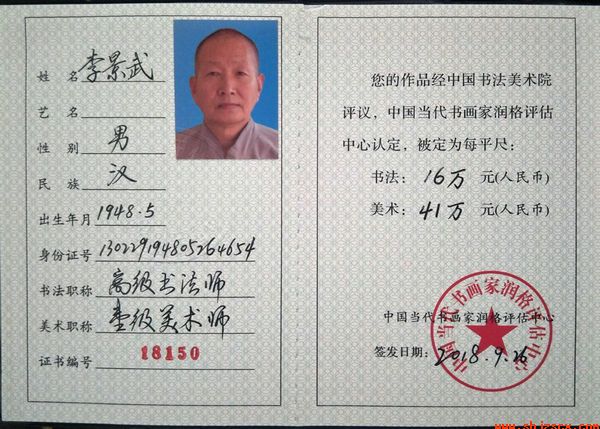 姓名 李景武
艺名
性别 男
民族 汉
出生年月 1948.5
身份证号 130229194805264654
书法职称 高级书法师
美术职称 壹级美术师
证书编号 18150
您的作品经中国书法美术院
评议,中国当代书画家润格评估
中心认定,被定为每平尺:
书法: 16万 元(人民币)
美术: 41万 元(人民币)
中国当代书画家润格评估中心
中国当代书画家润格评估中心
签发日期: 2018.9.26